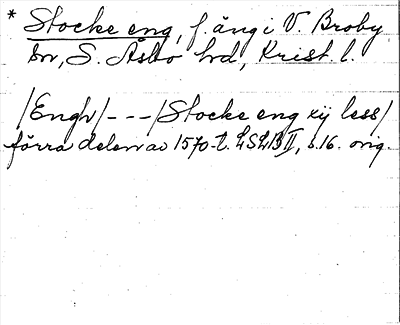 * Stocke eng, f. äng i V. Broby
sn, S. Åsbo hd, Krist. l.
/Engh/---/Stocke eng xij less/
förra delen av 1570-t. LSLB II, s. 16. orig.